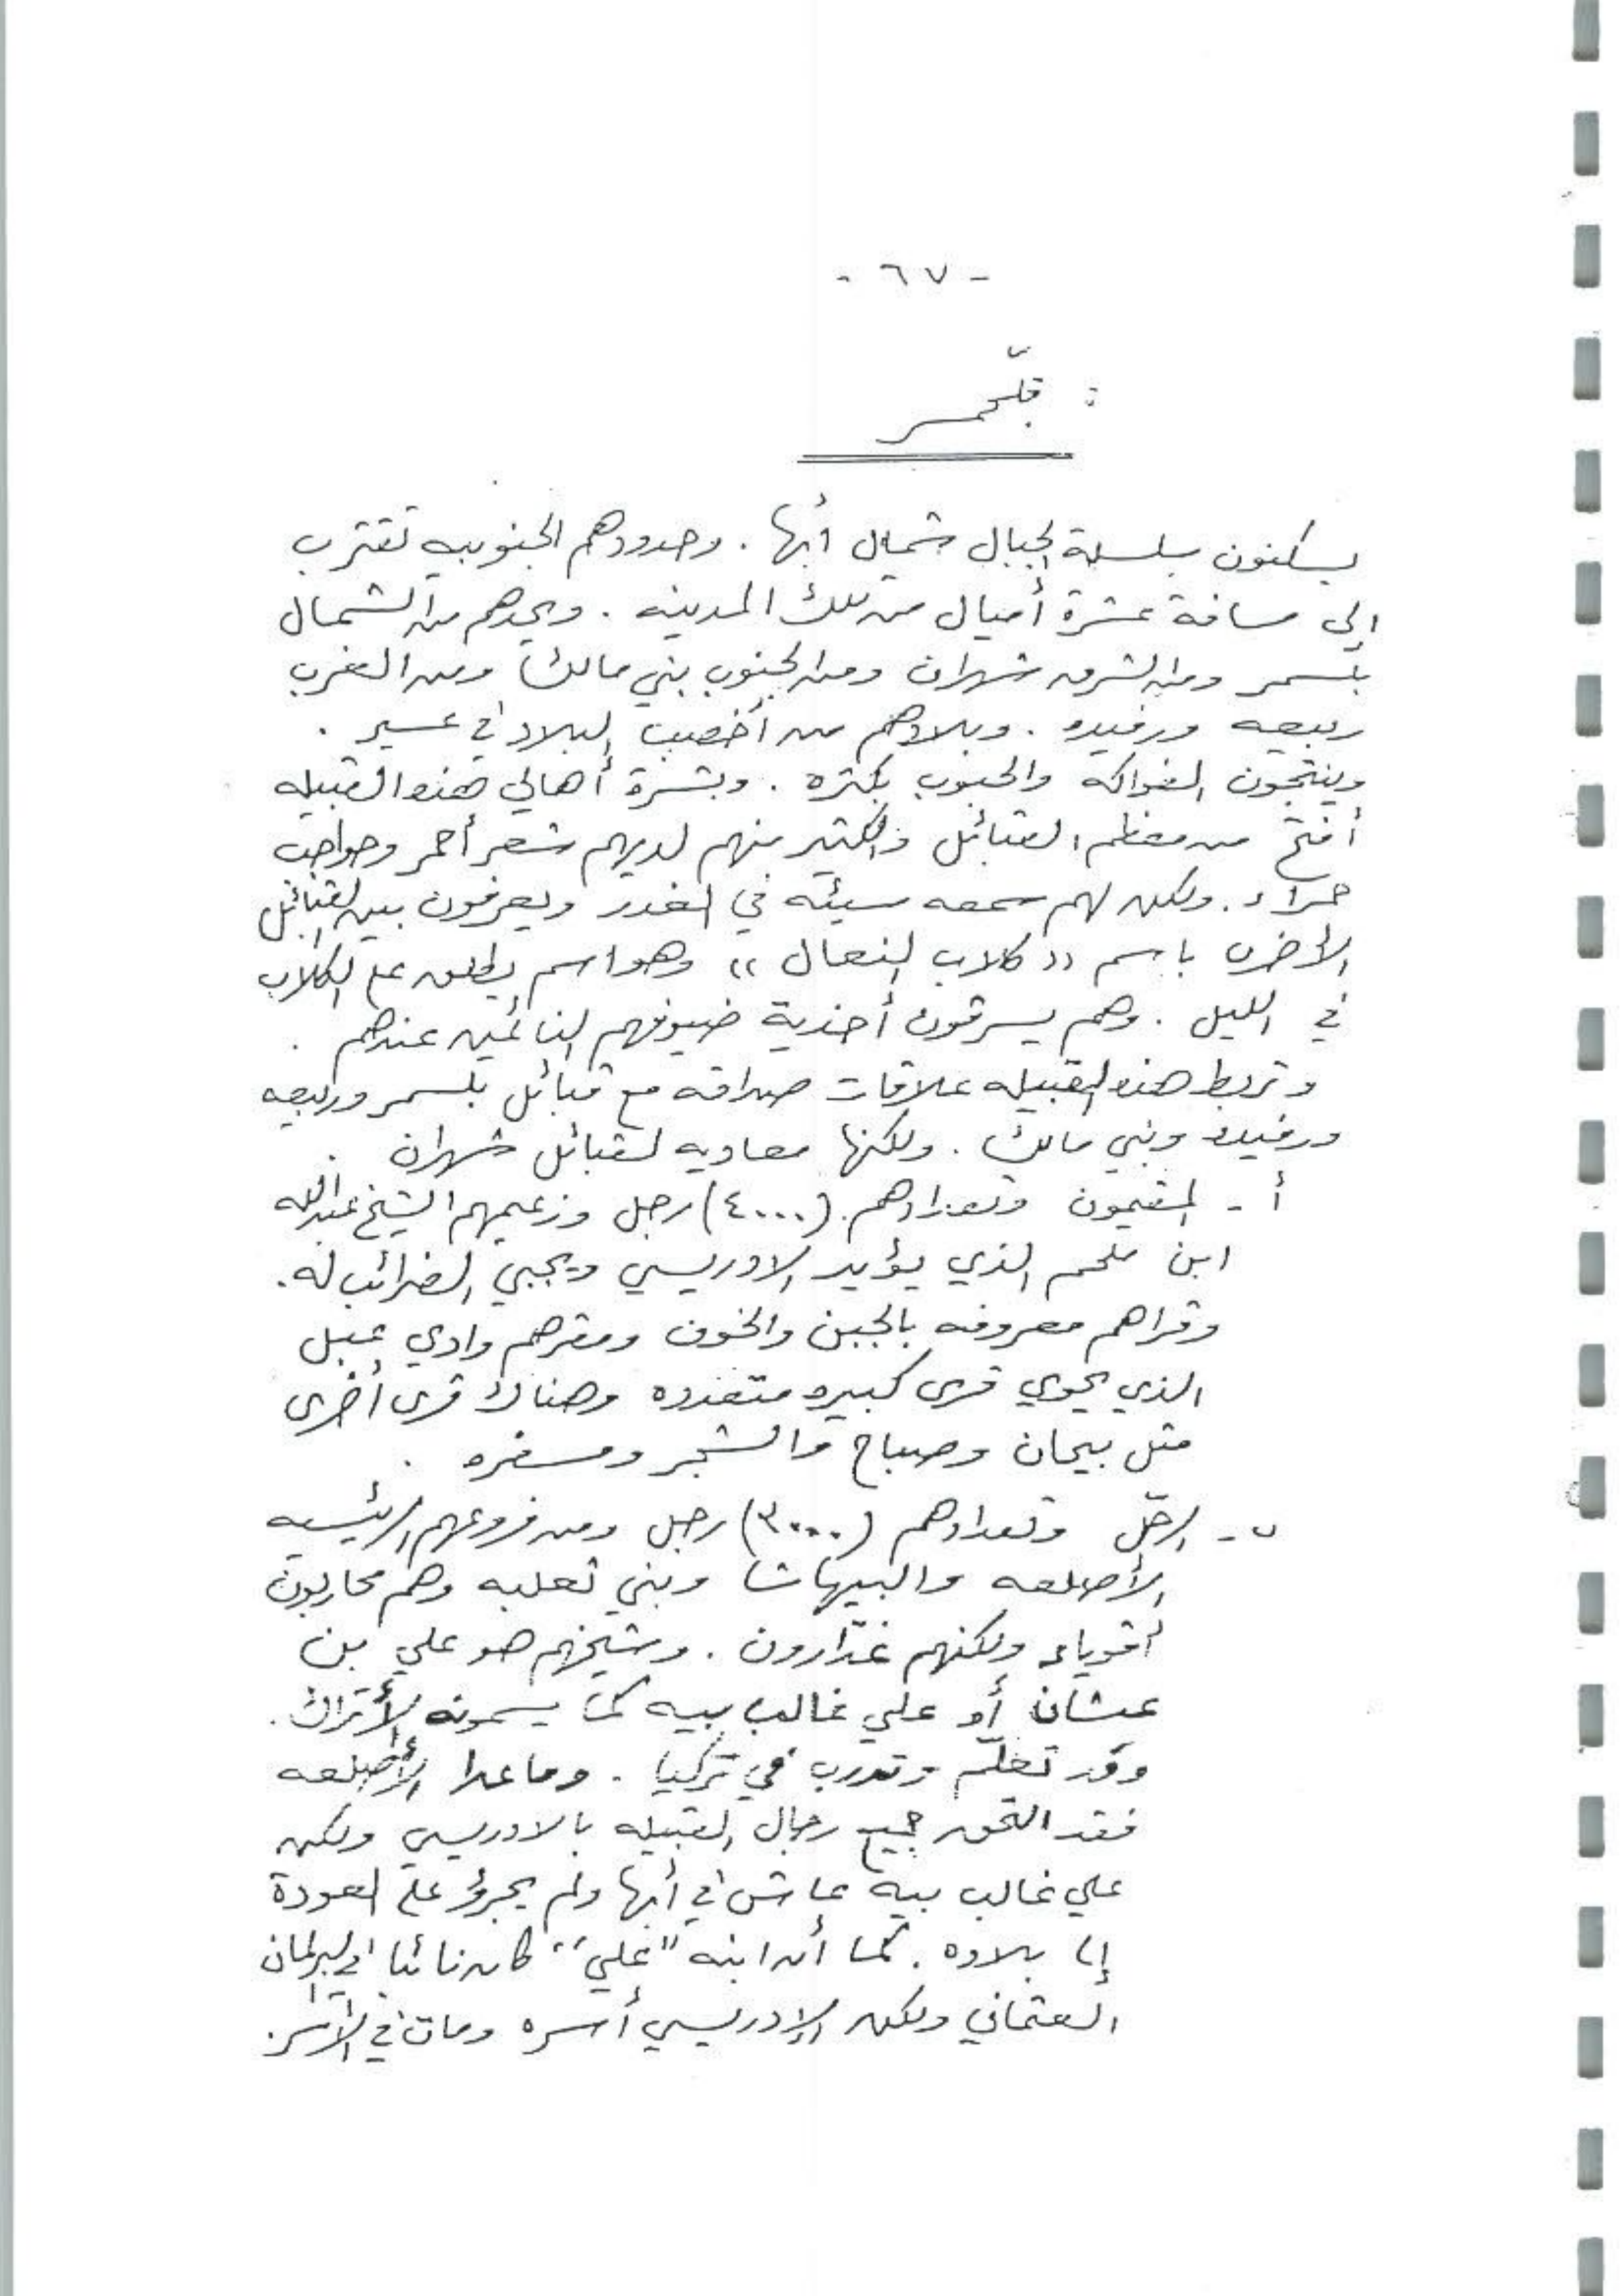 - ٦٧ -
: بلّحمر
يسكنون سلسلة الجبال شمال أبها . وحدودهم الجنوبيه تقترب
إلى مسافة عشرة أميال من تلك المدينه . ويحدهم من الشمال
بلسمر ومن الشرق شهران ومن الجنوب بني مالك ومن الغرب
ربيعه ورفيده . وبلادهم من أخصب البلاد في عسير .
وينتجون الفواكه والحبوب بكثره . وبشرة أهالي هذه القبيله
أفتح من معظم القبائل والكثير منهم لديهم شعر أحمر وحواجب
حمراء . ولكن لهم سمعه سيئه في الغدر ويعرفون بين القبائل
الأخرى باسم (( كلاب النعال )) وهو اسم يطلق على الكلاب
في الليل . وهم يسرقون أحذية ضيوفهم النائمين عندهم .
وتربط هذه القبيله علاقات صداقه مع قبائل بلسمر وربيعه
ورفيده وبني مالك . ولكنها معاديه لقبائل شهران .
أ - المقيمون وتعدادهم (٤٠٠٠) رجل وزعيمهم الشيخ عبدالله
ابن ملحم الذي يؤيد الادريسي ويجبي الضرائب له .
وقراهم معروفه بالجبن والخوف ومقرهم وادي عبل
الذي يحوي قرى كبيره متعدده وهناك قرى أخرى
مثل بيحان وصباح والشجر ومسفره .
ب - الرحّل وتعدادهم (٣٠٠٠) رجل ومن فروعهم الرئيسيه
الأصلعه والبيهاشا وبني ثعلبه وهم محاربون
أقوياء ولكنهم غدّارون . وشيخهم هو علي بن
عشان أو علي غالب بيه كما يسمونه الأتراك .
وقد تعلّم وتدرب في تركيا . وماعدا الأصلعه
فقد التحق جميع رجال القبيله بالادريسي ولكن
علي غالب بيه عاش في أبها ولم يجرؤ على العودة
إلى بلاده . كما أن ابنه "علي" كان نائبا في البرلمان
العثماني ولكن الإدريسي أسره ومات في الأسر .